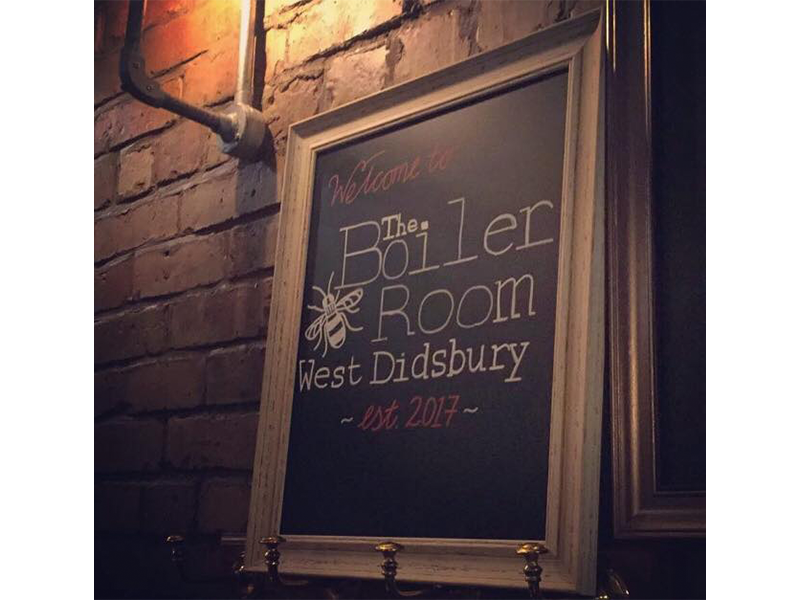 Welcome to
The
Boiler
Room
West Didsbury
~ est. 2017 ~